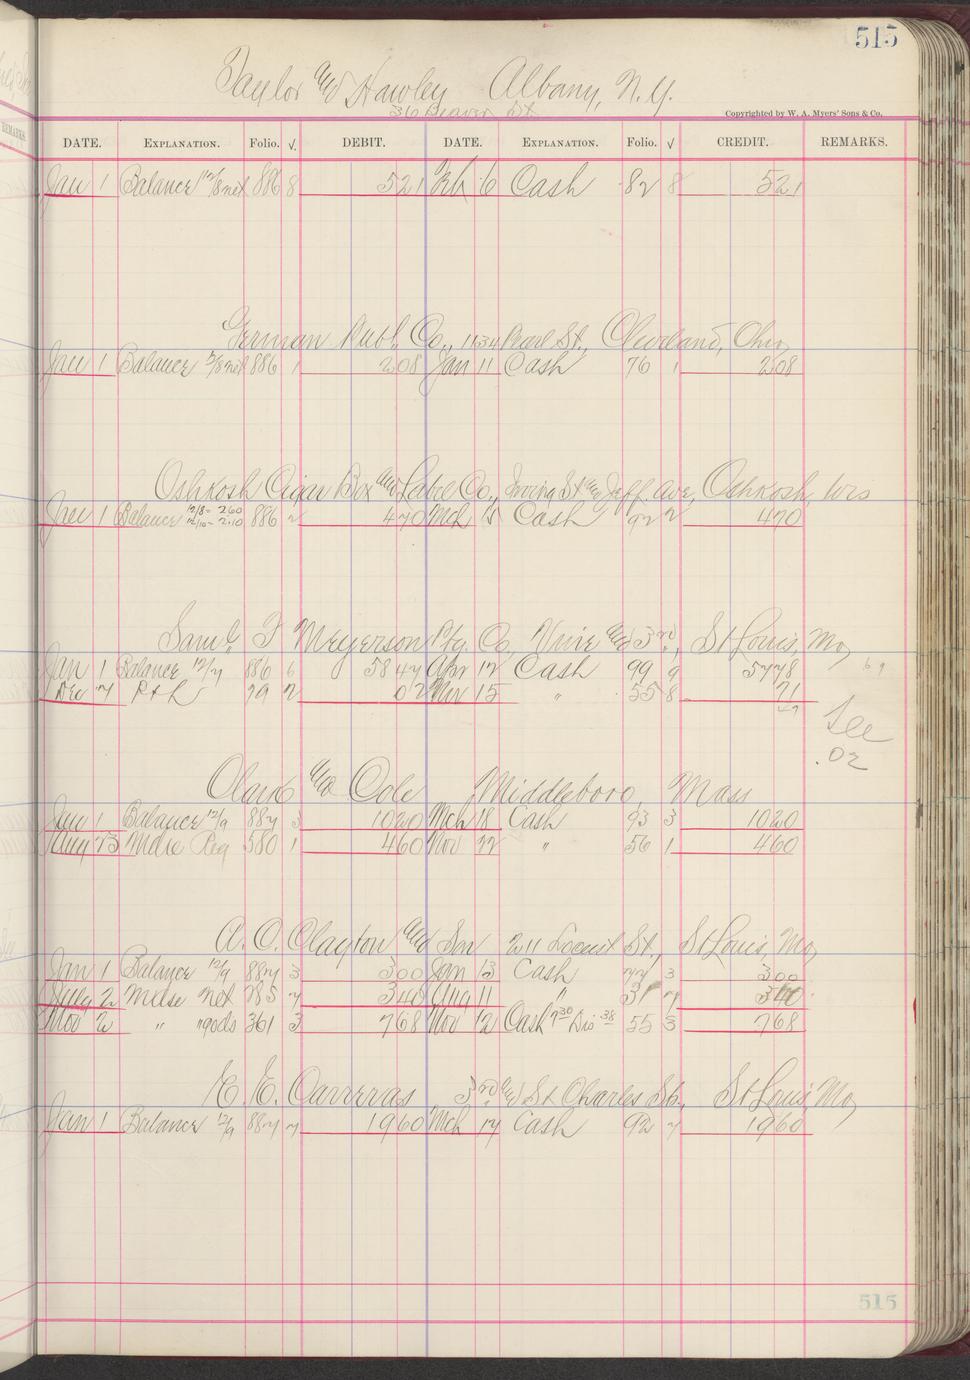 515
Taylor and Hawley Albany, N.Y.
36 Beaver St
Copyrighted by W. A. Myers' Sons & Co.
DATE. EXPLANATION. Folio. √. DEBIT. DATE. EXPLANATION. Folio. √ CREDIT. REMARKS.
Jan 1 Balance 12/8 net 886 8 521 Feb 6 Cash 82 8 521
German Publ. Co., 1134 Pearl St., Cleveland, Ohio
Jan 1 Balance 12/8 net 886 1 208 Jan 11 Cash 76 1 208
Oshkosh Cigar Box and Label Co., Irving St and Jeff. Ave, Oshkosh, Wis
Jan 1 Balance 12/8 - 260 12/10 - 210 886 2 470 Mch 15 Cash 92 2 470
Saml F Meyerson Ptg. Co, Vine and 3rd, St Louis, Mo,
Jan 1 Balance 12/7 886 6 5847 Apr 12 Cash 99 9 5778 69
Dec 7 P & L 79 2 02 Nov 15 " 55 8 71
See
.02
Clark and Cole Middleboro, Mass
Jan 1 Balance 12/9 887 3 1020 Mch 18 Cash 93 3 1020
Aug 23 Mdse Reg 580 1 460 Nov 22 " 56 1 460
A. C. Clayton and Son 211 Locust St., St Louis, Mo,
Jan 1 Balance 12/9 887 3 300 Jan 13 Cash 77 3 300
2 Mdse Net 785 7 340 Aug 11 " 31 7 340
Nov 2 " " gods 361 3 768 Nov 12 Cash 7 30 Dis 38 55 3 768
E. E. Carreras 3rd and St Charles St., St Louis, Mo,
Jan 1 Balance 12/9 887 7 1960 Mch 17 Cash 92 7 1960
515